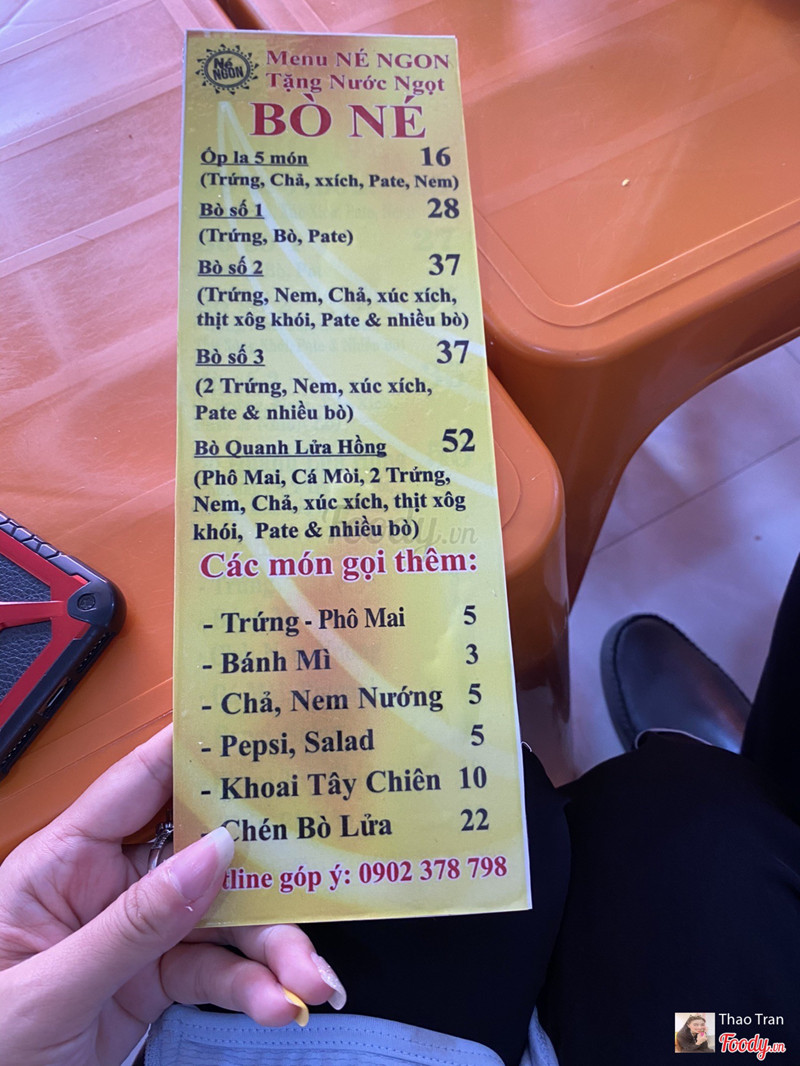 Né
NGON
Menu NÉ NGON
Tặng Nước Ngọt
BÒ NÉ
Óp la 5 món 16
(Trứng, Chả, xxích, Pate, Nem)
Bò số 1 28
(Trứng, Bò, Pate)
Bò số 2 37
(Trứng, Nem, Chả, xúc xích,
thịt xôg khói, Pate & nhiều bò)
Bò số 3 37
(2 Trứng, Nem, xúc xích,
Pate & nhiều bò)
Bò Quanh Lửa Hồng 52
(Phô Mai, Cá Mòi, 2 Trứng,
Nem, Chả, xúc xích, thịt xôg
khói, Pate & nhiều bò)
Foody.vn
Các món gọi thêm:
- Trứng - Phô Mai 5
- Bánh Mì 3
- Chả, Nem Nướng 5
- Pepsi, Salad 5
- Khoai Tây Chiên 10
- Chén Bò Lửa 22
tline góp ý: 0902 378 798
Thao Tran
Foody.vn